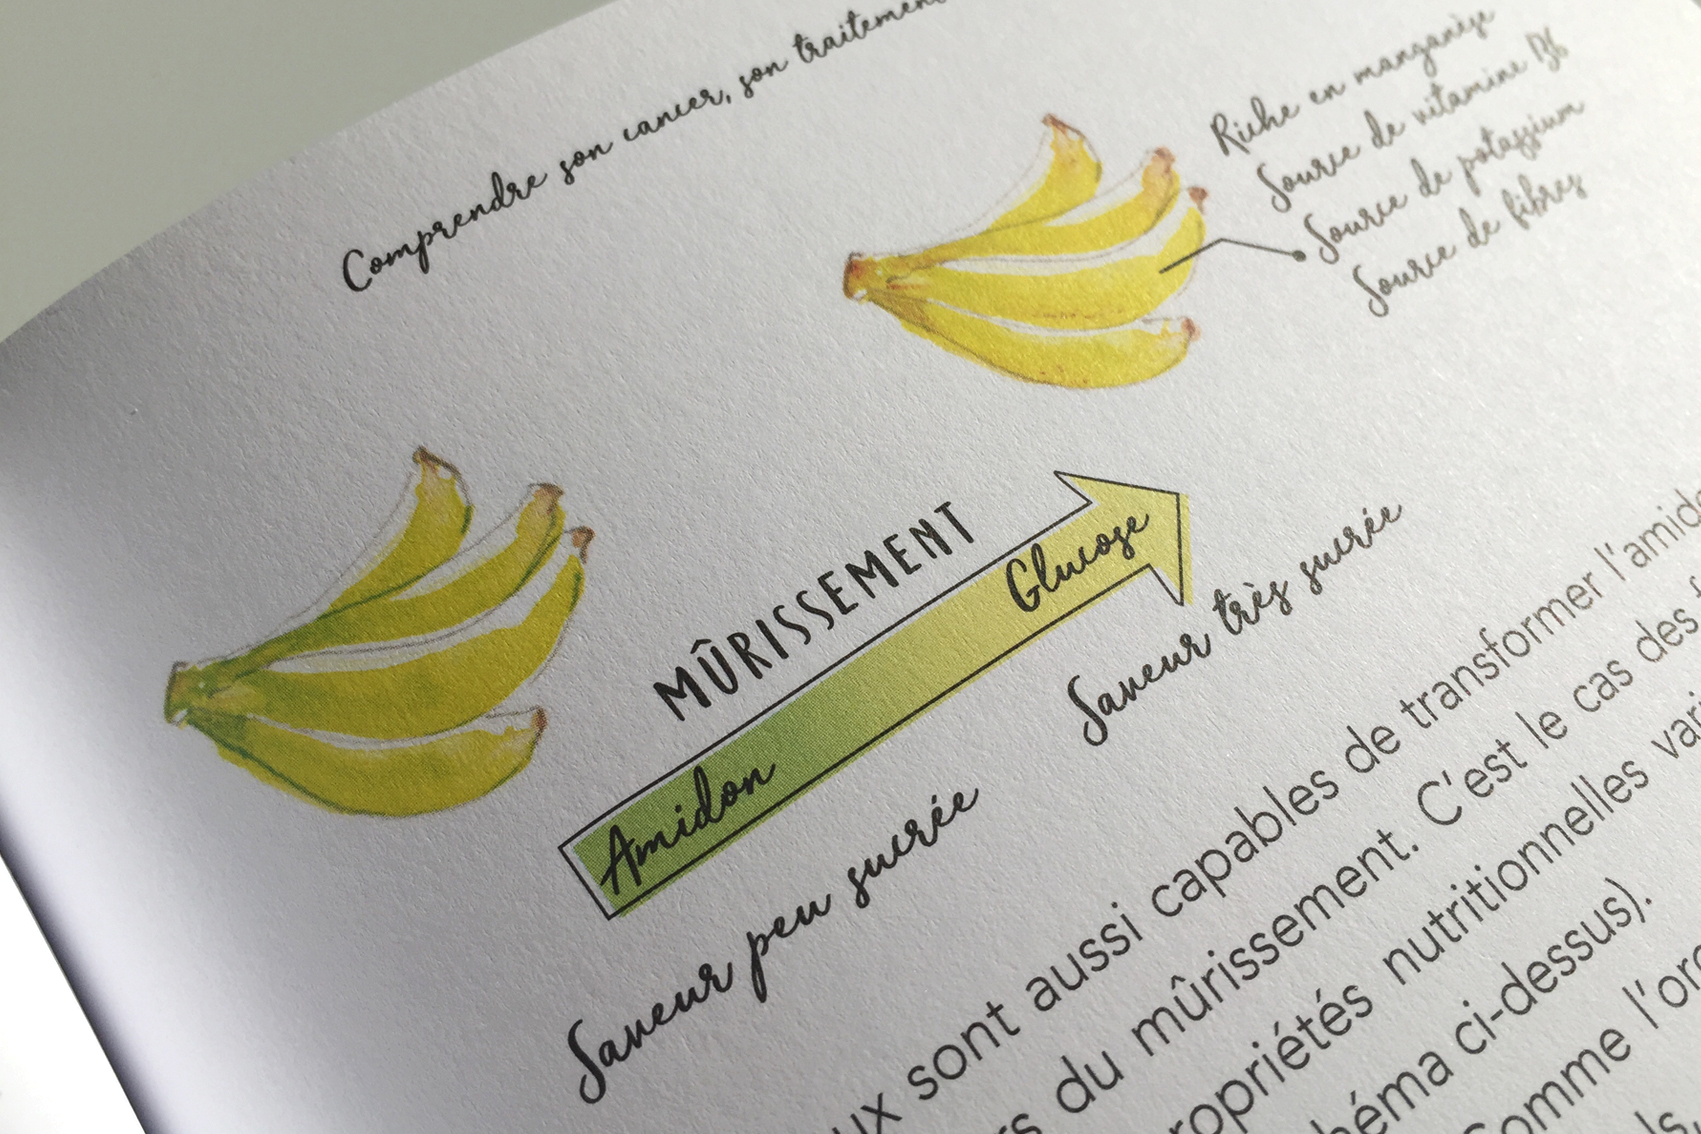 Comprendre son cancer, son traitement
Riche en manganèse
Source de vitamine B6
Source de potassium
Source de fibres
MÛRISSEMENT
Amidon
Glucose
Saveur peu sucrée
Saveur très sucrée
sont aussi capables de transformer l'amid
du mûrissement. C'est le cas des
ropriétés nutritionnelles vari
héma ci-dessus).
Comme l'or